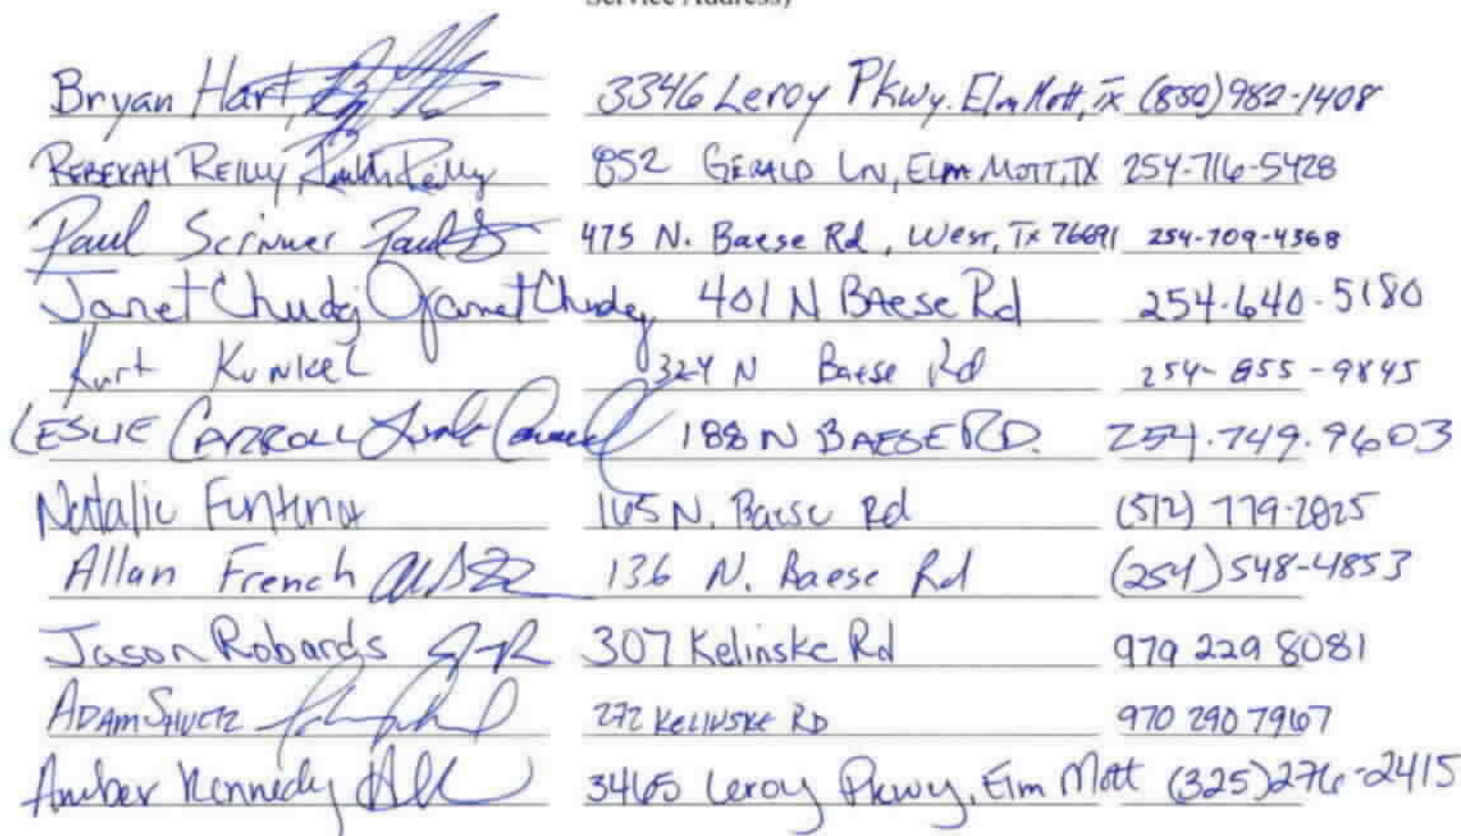 Service Address)
Bryan Hart, 3346 Leroy Pkwy. Elm Mott, TX (850) 982-1408
REBEKAH REILLY, 852 GERALD LN, ELM MOTT, TX 254-716-5428
Paul Scrivner 475 N. Baese Rd, West, Tx 76691 254-709-4368
Janet Chudej Janet Chudej 401 N BAese Rd 254-640-5180
Kurt Kunkel 324 N Baese Rd 254-855-9845
LESLIE CARROLL 188 N BAESE RD. 254.749.9603
Natalie 165 N. Baese Rd (512) 779-2825
Allan French 136 N. Baese Rd (254) 548-4853
Jason Robards 307 Kelinske Rd 979 229 8081
ADAM 272 KELINSKE RD 970 290 7967
Amber Kennedy 3465 Leroy Pkwy, Elm Mott (325) 276-2415